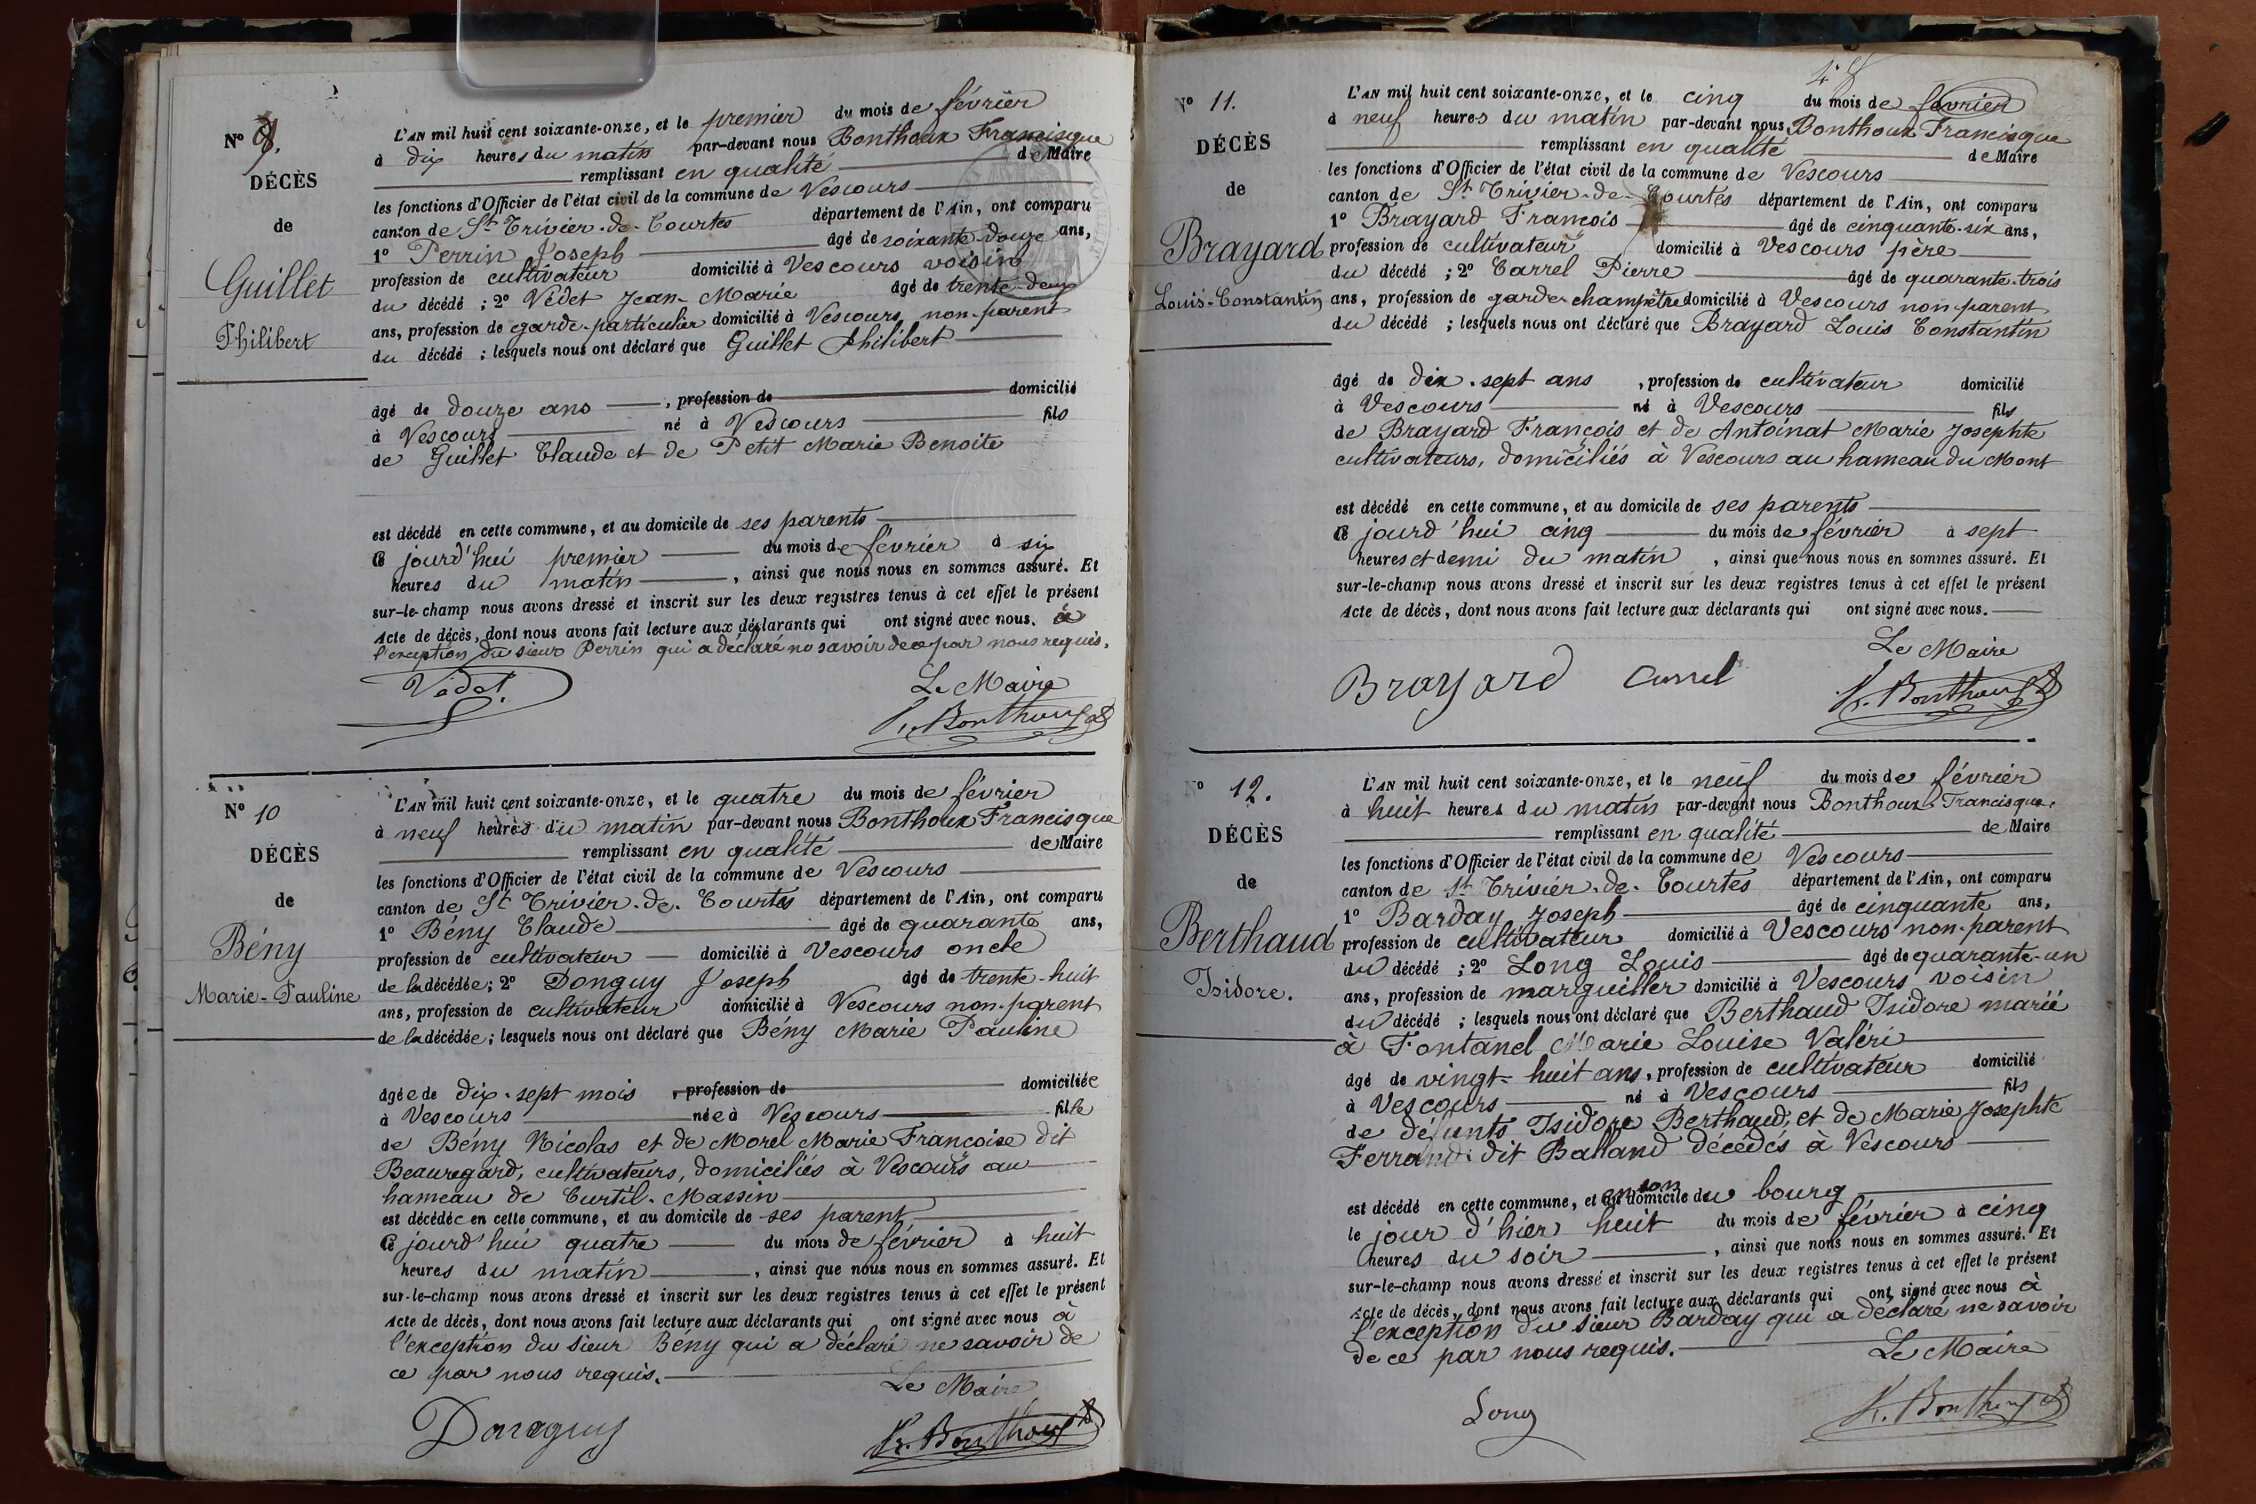 N° 9.
DÉCÈS
de
Guillet
Philibert
L'AN mil huit cent soixante-onze, et le premier du mois de février
à dix heures du matin par-devant nous Bonthoux Francisque
remplissant en qualité de Maire
les fonctions d'Officier de l'état civil de la commune de Vescours
canton de St Trivier-de-Courtes département de l'Ain, ont comparu
1° Perrin Joseph âgé de soixante-douze ans,
profession de cultivateur domicilié à Vescours voisin
du décédé ; 2° Védet Jean-Marie âgé de trente-deux
ans, profession de garde-particulier domicilié à Vescours, non-parent
du décédé ; lesquels nous ont déclaré que Guillet Philibert
âgé de douze ans , profession de domicilié
à Vescours né à Vescours fils
de Guillet Claude et de Petit Marie Benoite
est décédé en cette commune, et au domicile de ses parents
ce jourd'hui premier du mois de février à six
heures du matin , ainsi que nous nous en sommes assuré. Et
sur-le-champ nous avons dressé et inscrit sur les deux registres tenus à cet effet le présent
Acte de décès, dont nous avons fait lecture aux déclarants qui ont signé avec nous. à
l'exception du sieur Perrin qui a déclaré ne savoir de ce par nous requis.
Védet
Le Maire
Bonthoux
N° 10
DÉCÈS
de
Bény
Marie-Pauline
L'AN mil huit cent soixante-onze, et le quatre du mois de février
à neuf heures du matin par-devant nous Bonthoux Francisque
remplissant en qualité de Maire
les fonctions d'Officier de l'état civil de la commune de Vescours
canton de St Trivier-de-Courtes département de l'Ain, ont comparu
1° Bény Claude âgé de quarante ans,
profession de cultivateur domicilié à Vescours oncle
de la décédée ; 2° Donguy Joseph âgé de trente-huit
ans, profession de cultivateur domicilié à Vescours non-parent
de la décédée ; lesquels nous ont déclaré que Bény Marie Pauline
âgée de dix-sept mois , profession de domiciliée
à Vescours née à Vescours fille
de Bény Nicolas et de Morel Marie Françoise dit
Beauregard, cultivateurs, domiciliés à Vescours au
hameau de Curtil-Massin
est décédée en cette commune, et au domicile de ses parent
ce jourd'hui quatre du mois de février à huit
heures du matin , ainsi que nous nous en sommes assuré. Et
sur-le-champ nous avons dressé et inscrit sur les deux registres tenus à cet effet le présent
Acte de décès, dont nous avons fait lecture aux déclarants qui ont signé avec nous à
l'exception du sieur Bény qui a déclaré ne savoir de
ce par nous requis.
Le Maire
Donguy
Bonthoux
N° 11.
DÉCÈS
de
Brayard
Louis-Constantin
L'AN mil huit cent soixante-onze, et le cinq du mois de février
à neuf heures du matin par-devant nous Bonthoux Francisque
remplissant en qualité de Maire
les fonctions d'Officier de l'état civil de la commune de Vescours
canton de St Trivier-de-Courtes département de l'Ain, ont comparu
1° Brayard François âgé de cinquante-six ans,
profession de cultivateur domicilié à Vescours père
du décédé ; 2° Carrel Pierre âgé de quarante-trois
ans, profession de garde-champêtre domicilié à Vescours non-parent
du décédé ; lesquels nous ont déclaré que Brayard Louis Constantin
âgé de dix-sept ans , profession de cultivateur domicilié
à Vescours né à Vescours fils
de Brayard François et de Antoinat Marie Josephte
cultivateurs, domiciliés à Vescours au hameau du Mont
est décédé en cette commune, et au domicile de ses parents
ce jourd'hui cinq du mois de février à sept
heures et demi du matin , ainsi que nous nous en sommes assuré. Et
sur-le-champ nous avons dressé et inscrit sur les deux registres tenus à cet effet le présent
Acte de décès, dont nous avons fait lecture aux déclarants qui ont signé avec nous.
Le Maire
Brayard Carrel
Bonthoux
N° 12.
DÉCÈS
de
Berthaud
Isidore.
L'AN mil huit cent soixante-onze, et le neuf du mois de février
à huit heures du matin par-devant nous Bonthoux Francisque
remplissant en qualité de Maire
les fonctions d'Officier de l'état civil de la commune de Vescours
canton de St Trivier-de-Courtes département de l'Ain, ont comparu
1° Barday Joseph âgé de cinquante ans,
profession de cultivateur domicilié à Vescours non-parent
du décédé ; 2° Long Louis âgé de quarante-un
ans, profession de marguiller domicilié à Vescours voisin
du décédé ; lesquels nous ont déclaré que Berthaud Isidore marié
à Fontanel Marie Louise Valéri
âgé de vingt-huit ans, profession de cultivateur domicilié
à Vescours né à Vescours fils
de défunts Isidore Berthaud, et de Marie Josephte
Ferrand dit Balland décédés à Vescours
est décédé en cette commune, et en son domicile du bourg
le jour d'hier huit du mois de février à cinq
heures du soir , ainsi que nous nous en sommes assuré. Et
sur-le-champ nous avons dressé et inscrit sur les deux registres tenus à cet effet le présent
Acte de décès, dont nous avons fait lecture aux déclarants qui ont signé avec nous à
l'exception du sieur Barday qui a déclaré ne savoir
de ce par nous requis.
Le Maire
Long
Bonthoux